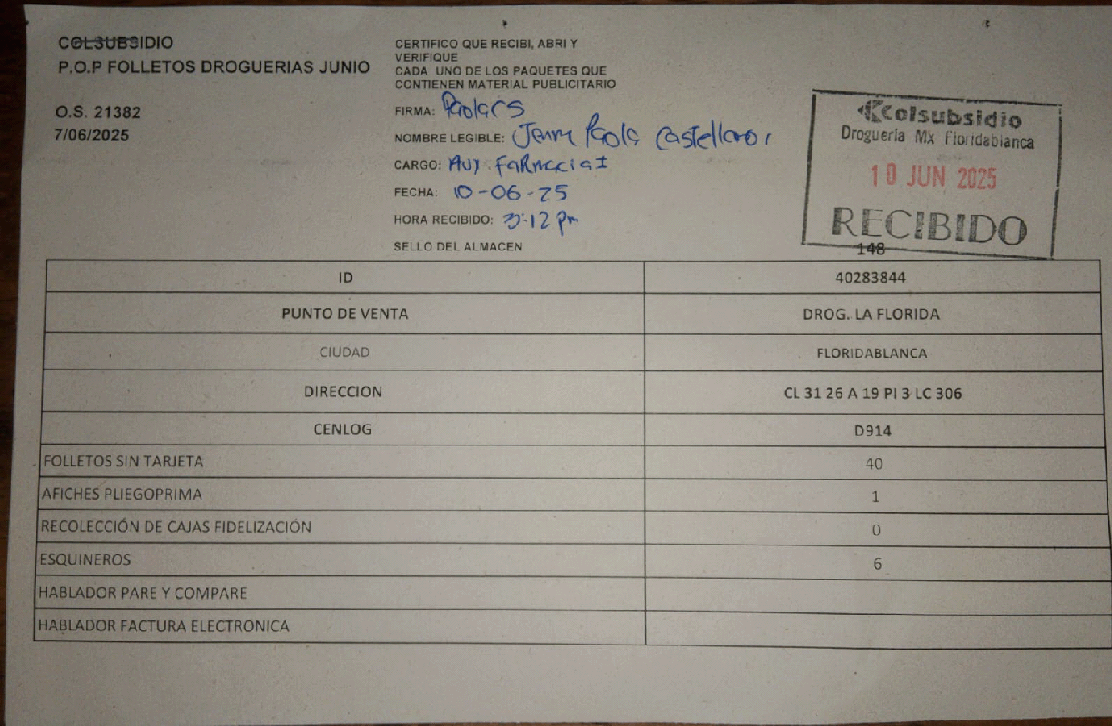 COLSUBSIDIO
P.O.P FOLLETOS DROGUERIAS JUNIO
O.S. 21382
7/06/2025
CERTIFICO QUE RECIBI, ABRI Y
VERIFIQUE
CADA UNO DE LOS PAQUETES QUE
CONTIENEN MATERIAL PUBLICITARIO
FIRMA:
NOMBRE LEGIBLE: Paola Castellanos
CARGO: Aux. FaRmacia I
FECHA: 10-06-25
HORA RECIBIDO: 3:12 pm
SELLO DEL ALMACEN
Colsubsidio
Droguería Mx Floridablanca
10 JUN 2025
RECIBIDO
148
ID 40283844
PUNTO DE VENTA DROG. LA FLORIDA
CIUDAD FLORIDABLANCA
DIRECCION CL 31 26 A 19 PI 3 LC 306
CENLOG D914
FOLLETOS SIN TARJETA 40
AFICHES PLIEGOPRIMA 1
RECOLECCIÓN DE CAJAS FIDELIZACIÓN 0
ESQUINEROS 6
HABLADOR PARE Y COMPARE
HABLADOR FACTURA ELECTRONICA